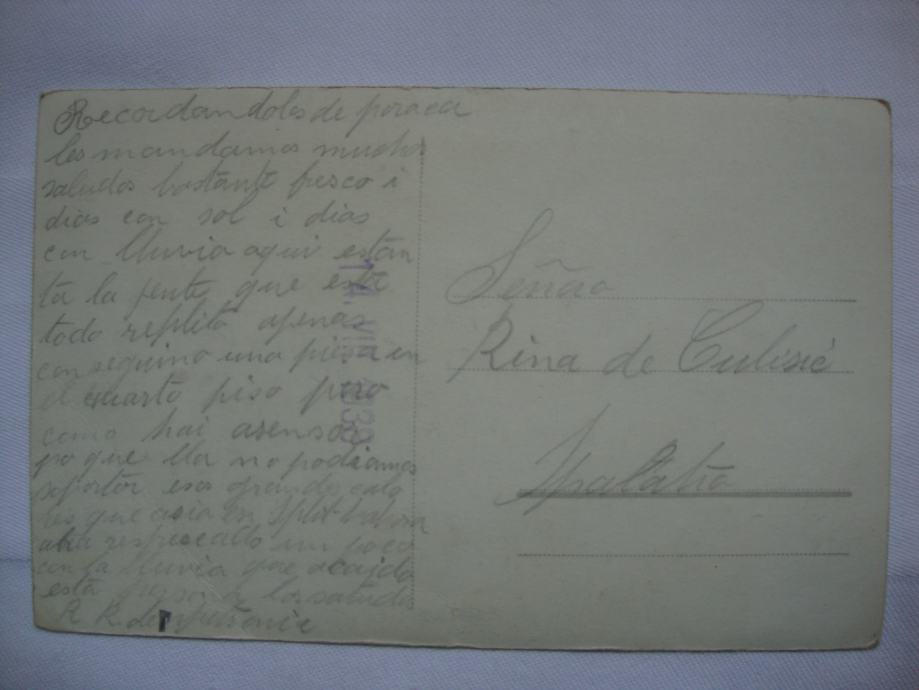 Recordandoles de poraca
les mandamos muchos
saludos bastante fresco i
dias con sol i dias
con lluvia aqui estan
ta la jente que esta
todo replito apenas
conseguino una piesa en
el cuarto piso pero
como hai asensor
porque lla no podiamos
soportar esos grandes calo
res que asia en Split
un poco
con la lluvia que acaido
esta los saluda
R R de
VII
Señora
Rina de Culisić
Spalato